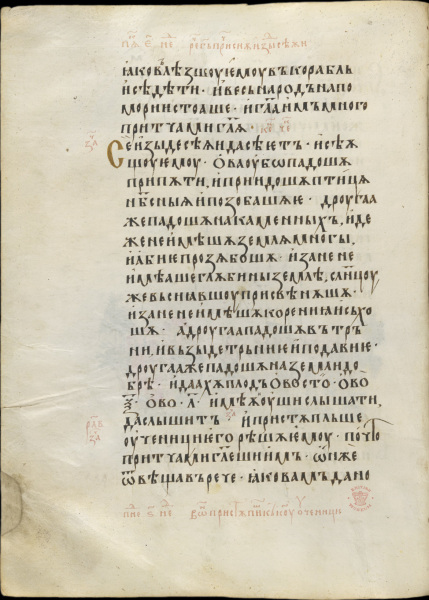 ꙗко влѣзшоу ѥмоу въ корабль
и сѣдѣти · и весь народъ на по
мори и стоаше · и гл҃а имъ много
притчами гл҃ѧ ·
Се изыде сѣѧи да сѣетъ · и сѣѫ
щоу ѥмоу · ова оубѡ падошѧ
при пѫти, и приидошѧ птицѧ
нб҃сныѧ и позобашѧ ѥ · дроугаа
же падошѧ на каменныхъ, иде
же не имѣшѧ землѧ многы,
и абиѥ прозѧбошѧ · и зане не
имѣаше глѫбины землѣ, сл҃нцоу
же въсиавшоу присвѣнѫшѧ ·
и зане не имѣшѧ корениа исъхо
шѧ · а дроугаа падошѧ въ тръ
ни, и възыде тръниѥ и подави ѥ ·
дроугаа же падошѧ на земли до
брѣ · и даахѫ плодъ ово сто · ово
ѯ҃ · ово · л҃ · имѣѫи оуши слышати,
да слышитъ · и пристѫпльше
оученици его рѣшѧ ѥмоу · почто
притчами гл҃еши имъ · ѡн же
ѿвѣщавъ рече · ꙗко вамъ дано